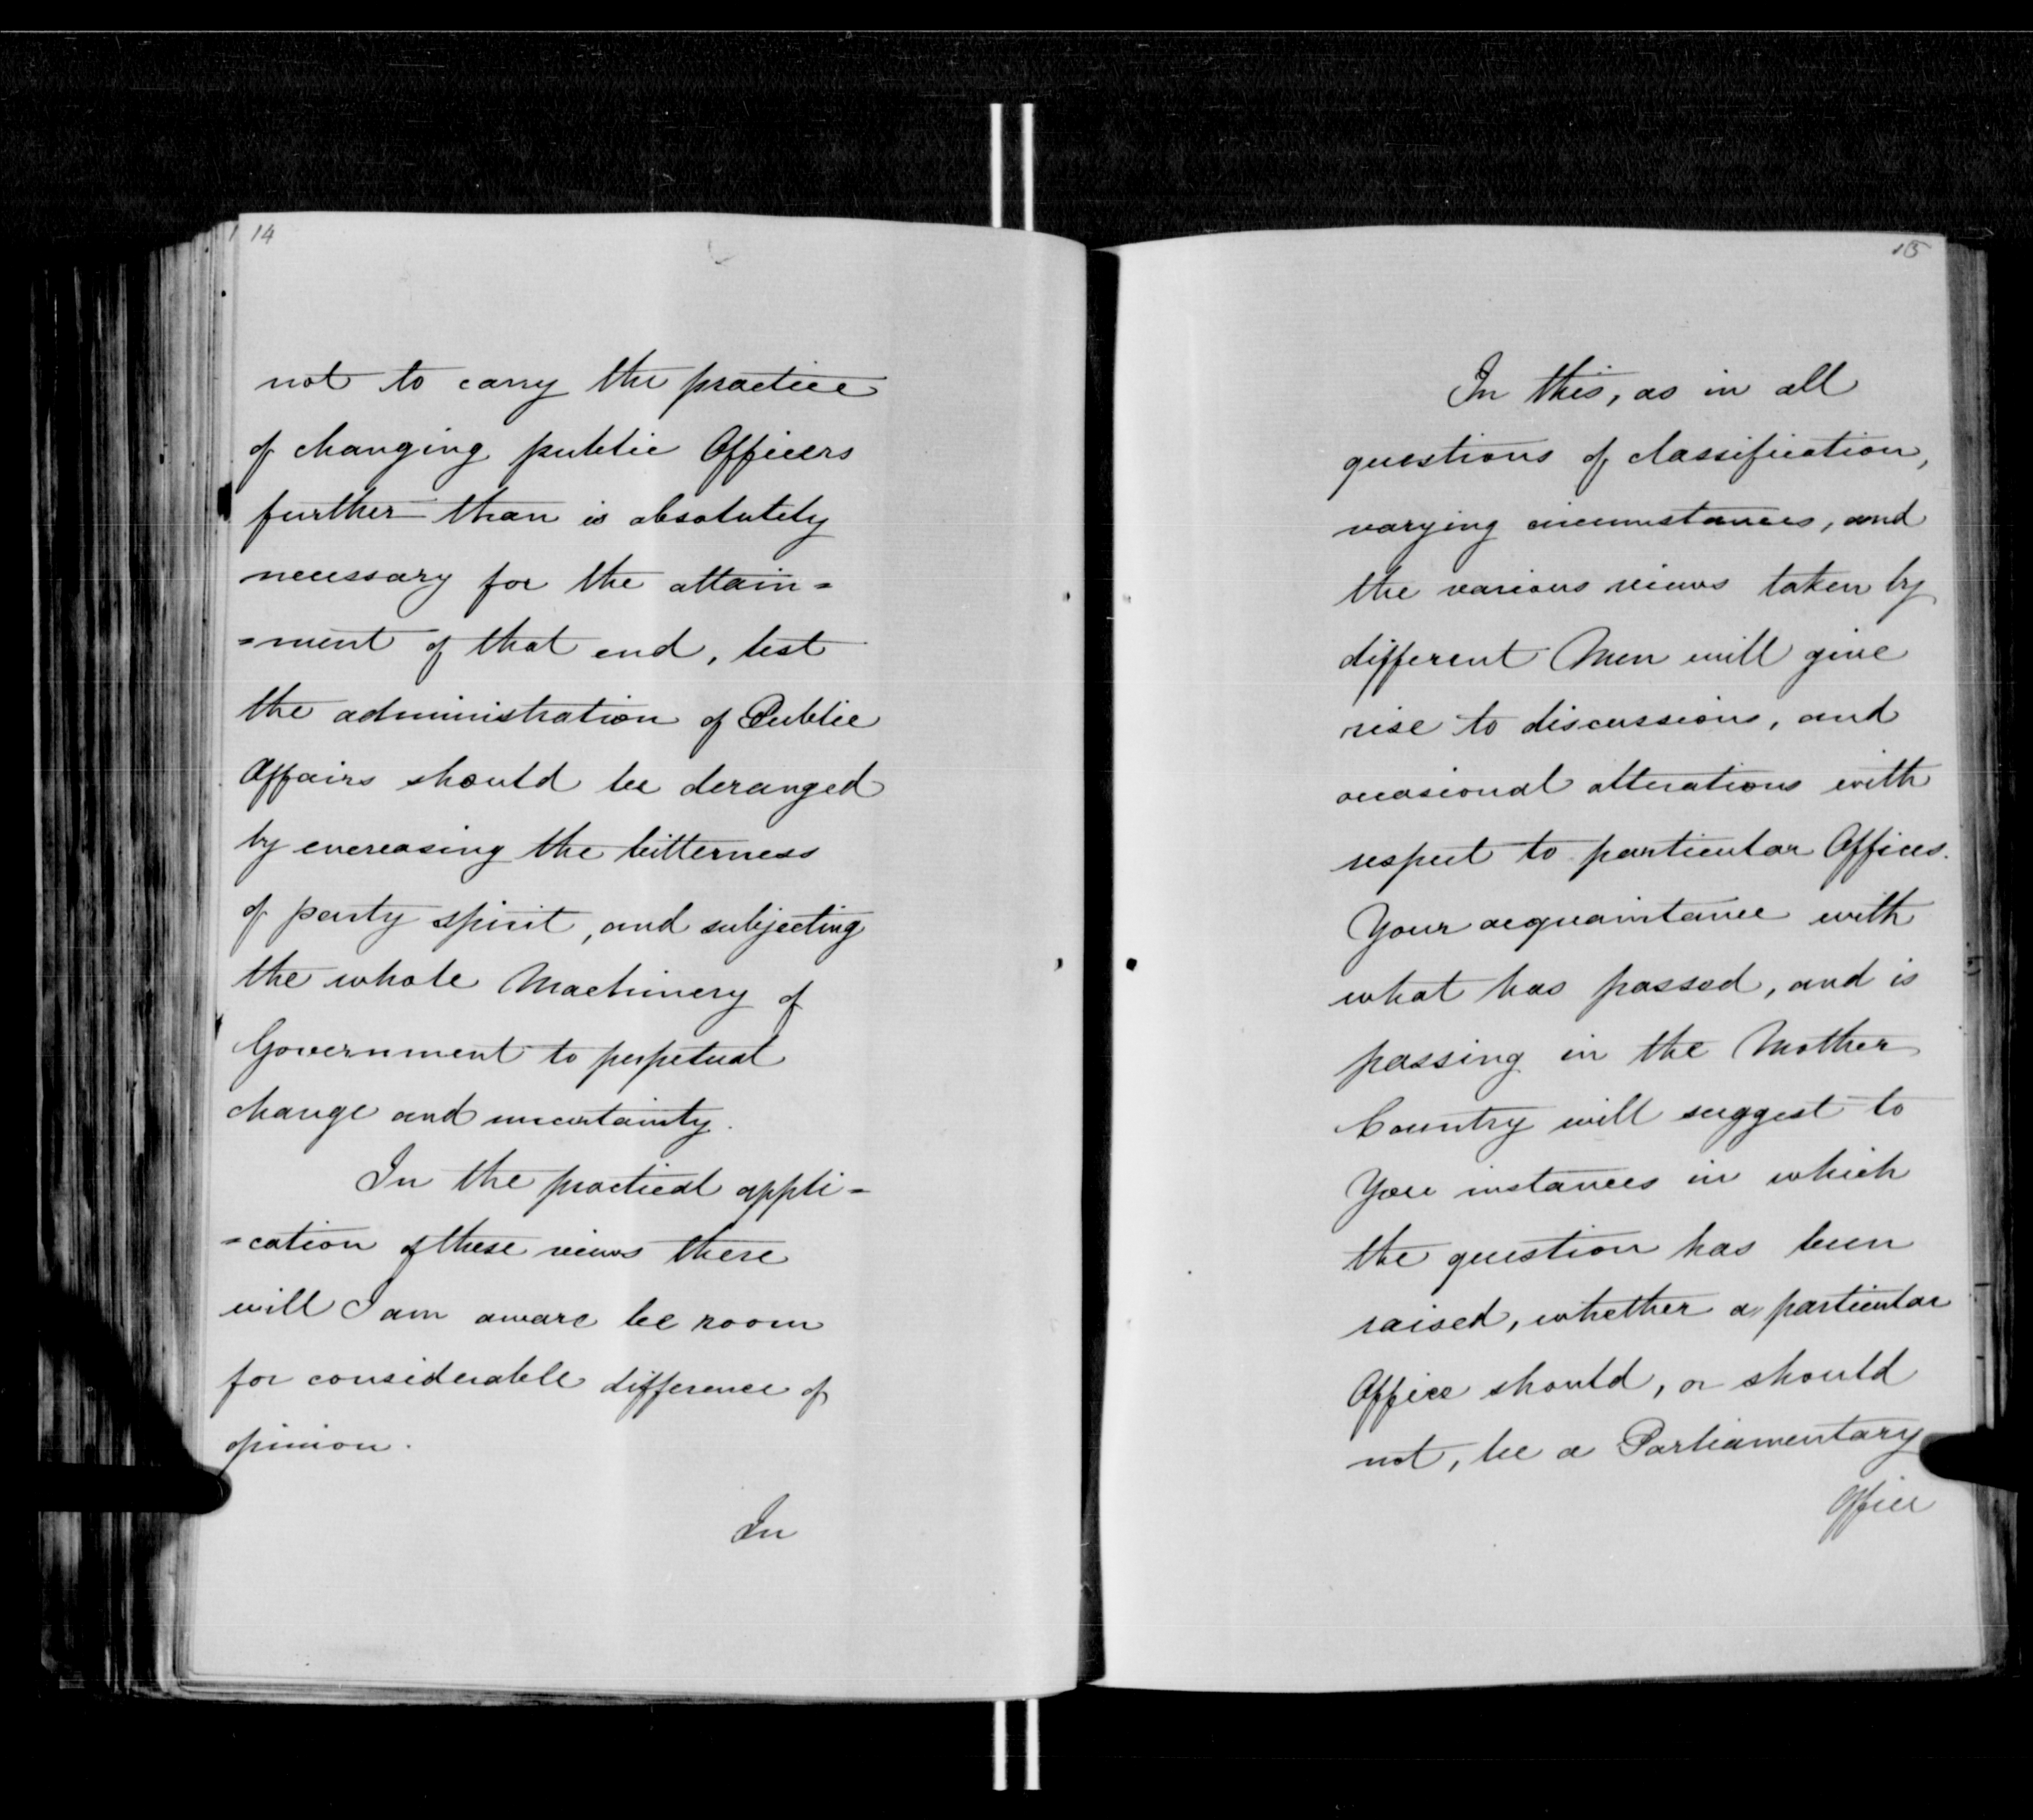 14
not to carry the practice
of changing public Officers
further than is absolutely
necessary for the attain=
=ment of that end, lest
the administration of Public
Affairs should be deranged
by encreasing the bitterness
of party spirit, and subjecting
the whole Machinery of
Government to perpetual
change and uncertainty.
In the practical appli=
=cation of these views there
will I am aware be room
for considerable difference of
opinion.
In
15
In this, as in all
questions of classification,
varying circumstances, and
the various views taken by
different Men will give
rise to discussions, and
occasional alterations with
respect to particular Offices.
Your acquaintance with
what has passed, and is
passing in the Mother
Country will suggest to
You instances in which
the question has been
raised, whether a particular
Officer should, or should
not, be a Parliamentary
Officer